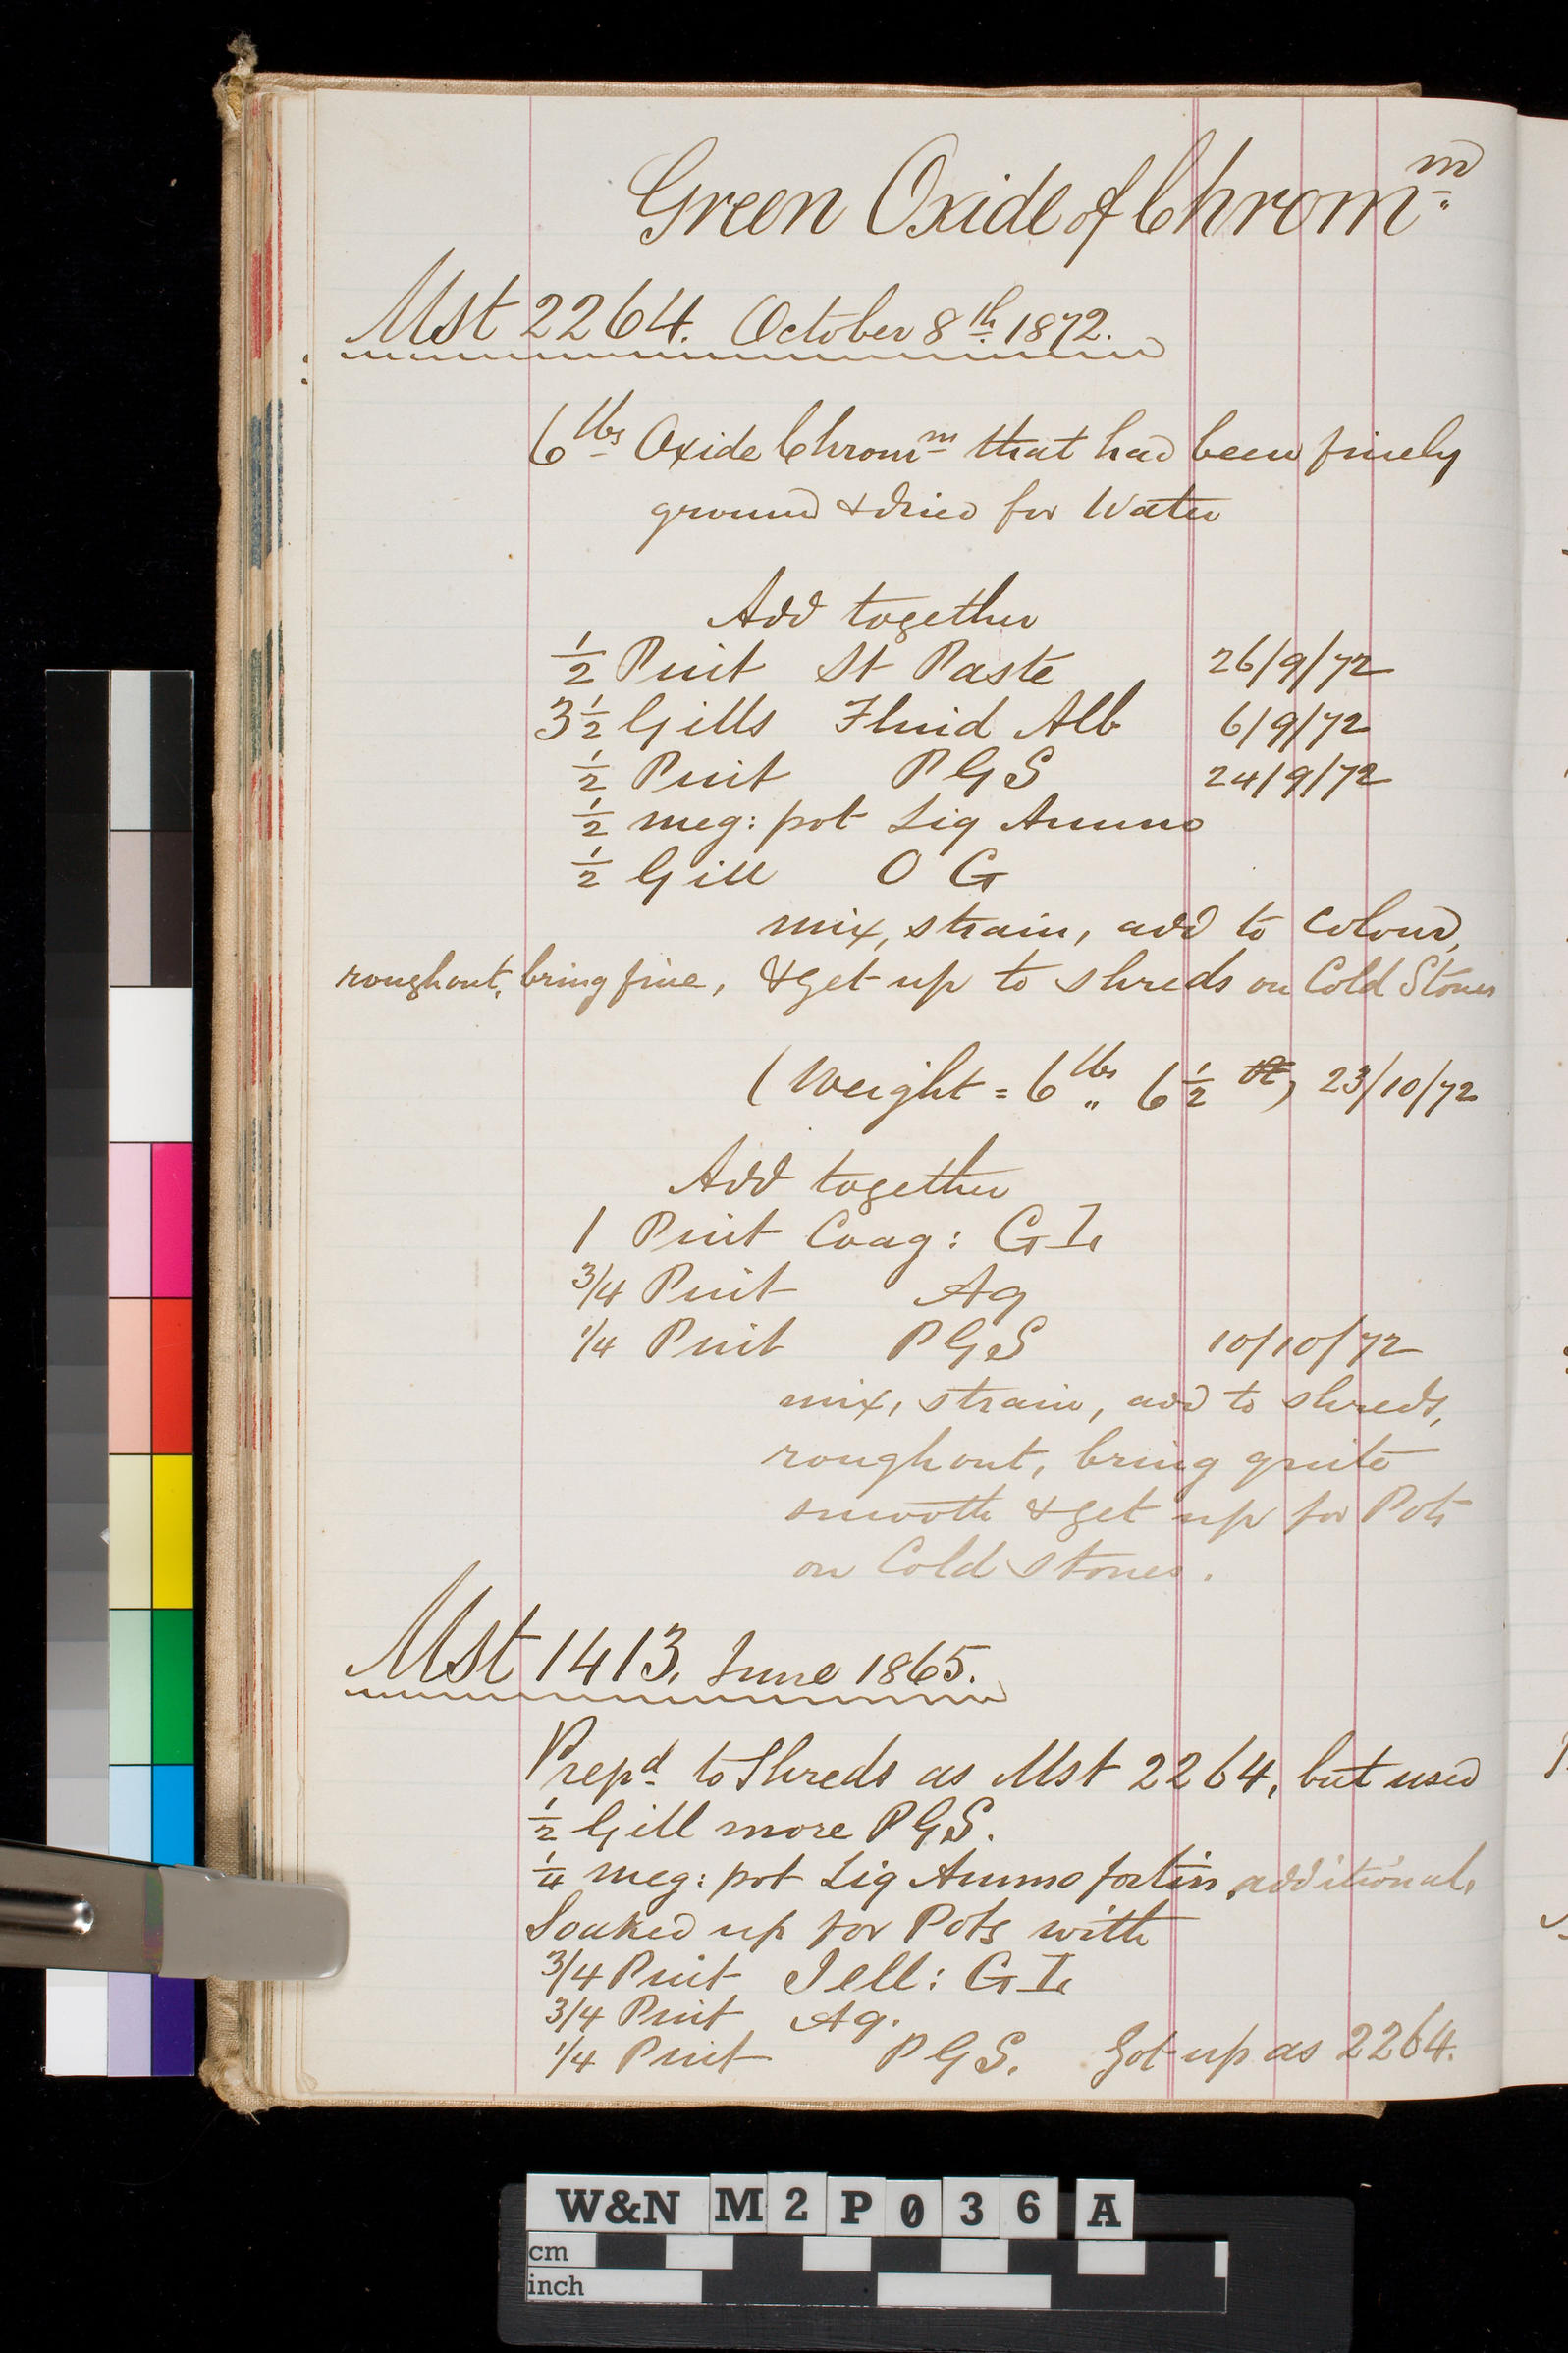 Green Oxide of Chromm
Mst 2264. October 8th. 1872.
6lbs Oxide Chromm that had been finely
ground & dried for Water
Add together
1/2 Pint St Paste 26/9/72
3 1/2 Gills Fluid Alb 6/9/72
1/2 Pint P G S 24/9/72
1/2 meg: pot Liq Ammo
1/2 Gill O G
mix, strain, add to colour,
roughout, bring fine, & get up to shreds on Cold Stones
(Weight = 6lbs „ 6 1/2 ) 23/10/72
Add together
1 Pint Coag: G I,
3/4 Pint Aq
1/4 Pint P G S 10/10/72
mix, strain, add to shreds,
roughout, bring quite
smooth & get up for Pots
on Cold Stones.
Mst 1413. June 1865.
Prepd to Shreds as Mst 2264, but used
1/2 Gill more P G S.
1/4 meg: pot Liq Ammo fortis, additional,
Soaked up for Pots with
3/4 Pint Jell: G I,
3/4 Pint Aq.
1/4 Pint P G S. Got up as 2264.
W&N M 2 P 0 3 6 A
cm
inch